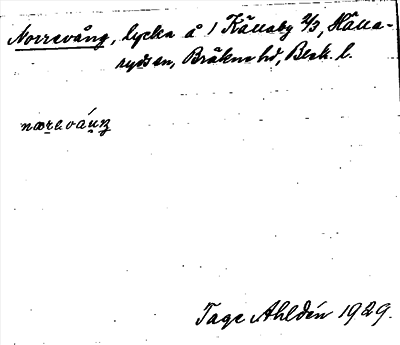 Norrevång, lycka å 1 Källeby 2/3, Hälla-
rydssn, Bräkne hd, Blek. l.
nærevánz
Tage Ahldén 1929.